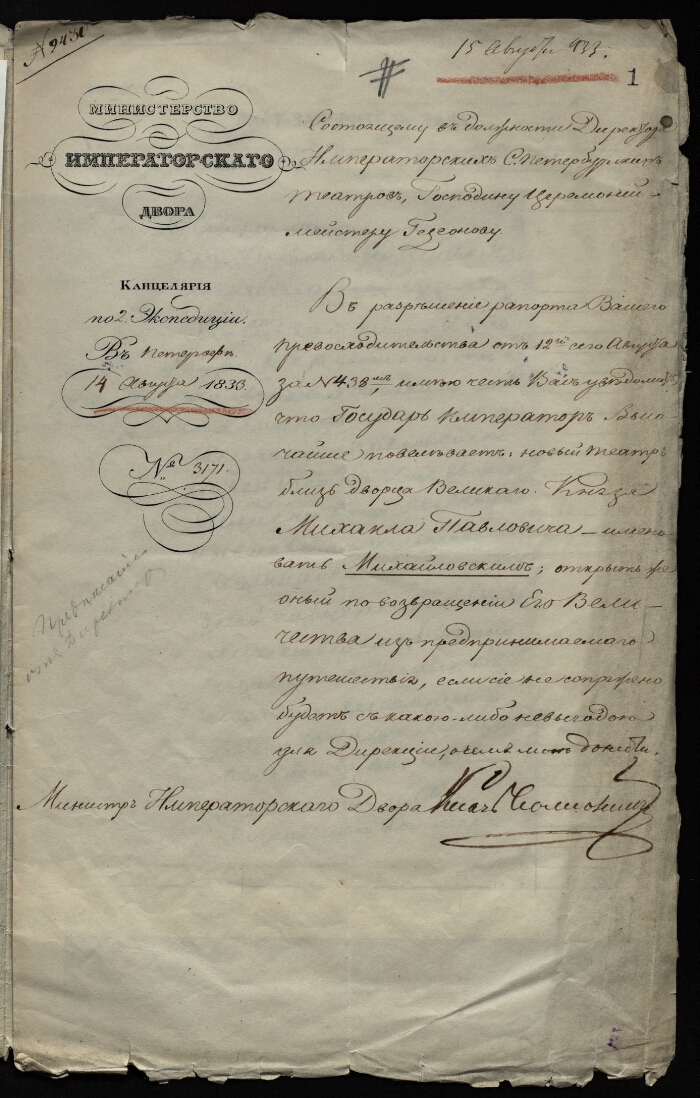 № 2431
15 Августа 833.
1
МИНИСТЕРСТВО
ИМПЕРАТОРСКАГО
ДВОРА
Канцелярія
по 2. Экспедиціи.
Въ Петергофѣ.
14 Августа 1833.
№ 3171.
Предписаніе
Состоящему въ должности Директора
Императорскихъ С. Петербургскихъ
театровъ, Господину Церемоній-
мейстеру Гедеонову.
Въ разрѣшеніе рапорта Вашего
превосходительства отъ 12го сего Августа
за № 438мъ, имѣю честь Васъ увѣдомить,
что Государь Императоръ Высо-
чайше повелѣваетъ: новый театръ
близъ дворца Великаго Князя
Михаила Павловича – имено-
вать Михайловскимъ; открыть же
оный по возвращеніи Его Вели-
чества изъ предпринимаемаго
путешествія, если сіе не сопряжено
будетъ съ какою-либо невыгодою
для Дирекціи, о чемъ мнѣ донести.
Министръ Императорскаго Двора Князь Волконскій